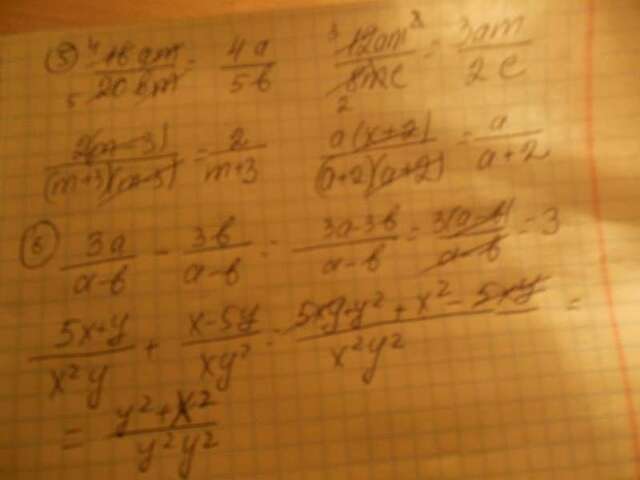 5) 16am/20bm = 4a/5b 12am²/8mc = 3am/2c
2(m-3)/(m+3)(m-3) = 2/m+3 a(x+2)/(a+2)(a+2) = a/a+2
6) 3a/a-b - 3b/a-b = 3a-3b/a-b = 3(a-b)/a-b = 3
5x+y/x²y + x-5y/xy² = 5xy+y²+x²-5xy/x²y² =
= y²+x²/y²y²